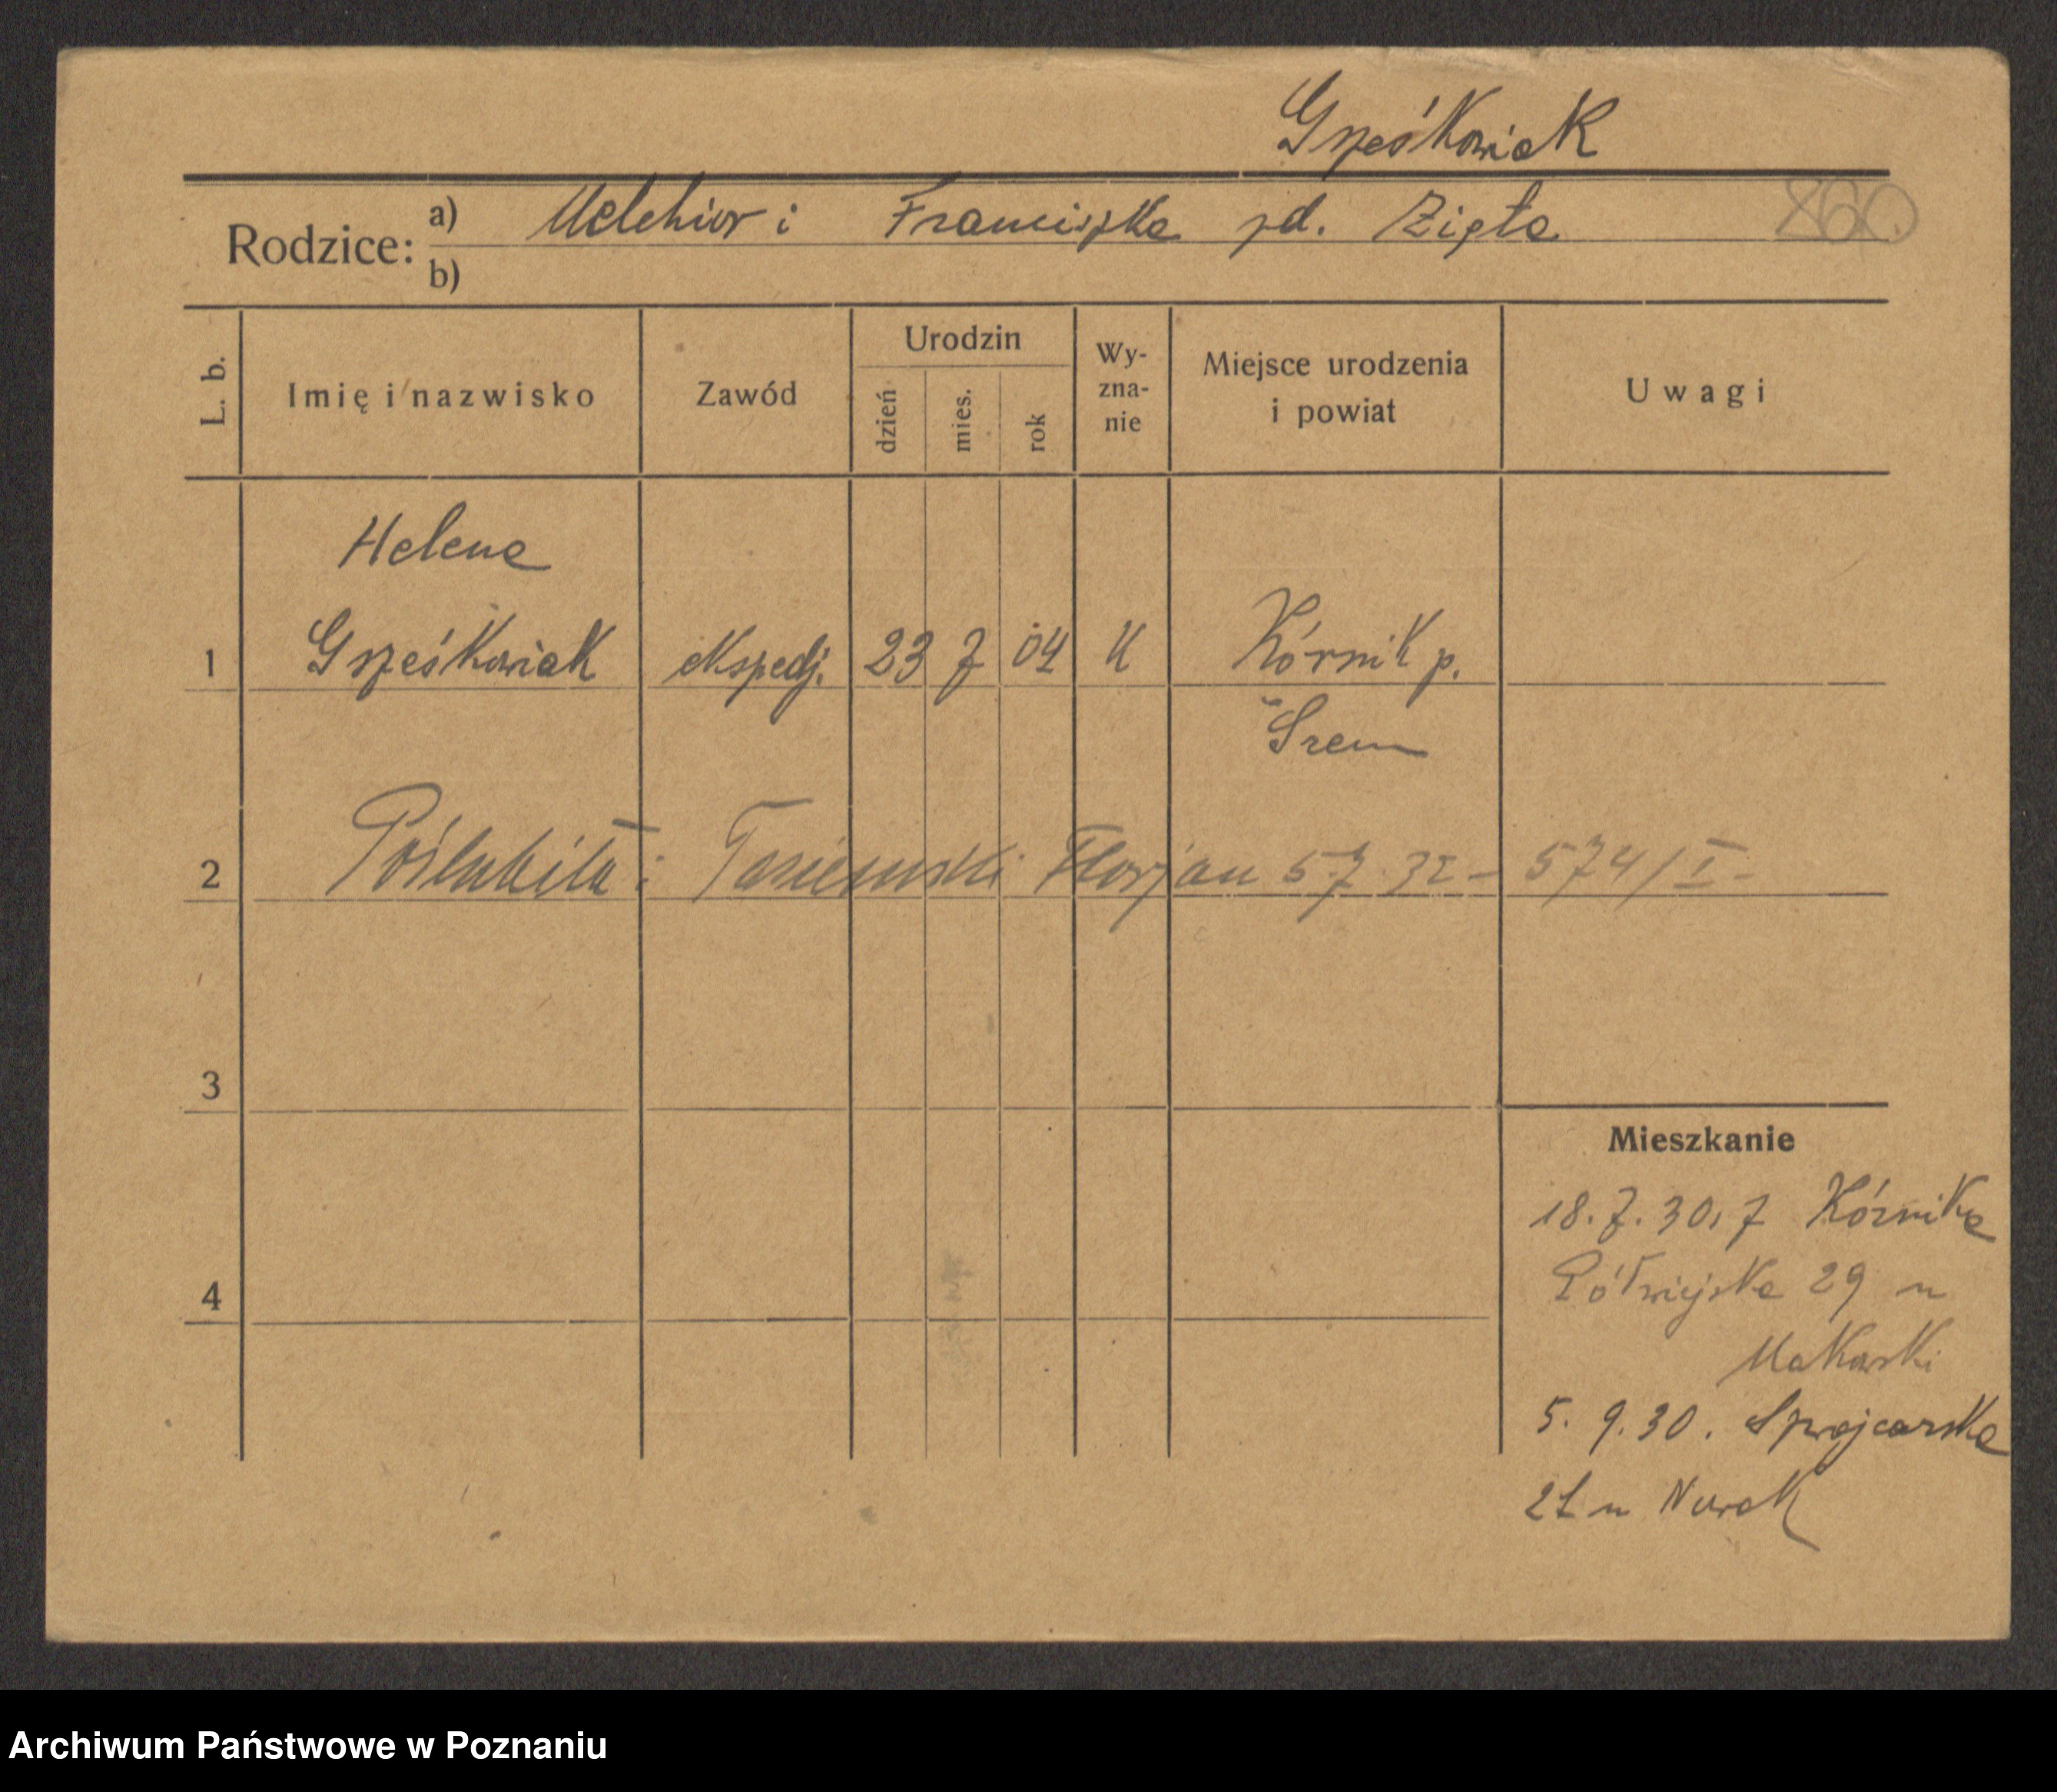 Grześkowiak
Rodzice: a) Melchior i Franciszka zd. Zięta 860
b)
L. b. Imię i nazwisko Zawód Urodzin dzień mies. rok Wy-zna-nie Miejsce urodzenia i powiat Uwagi
Helena
1 Grześkowiak ekspedj. 23 7 04 K Kórnik p.
Śrem
2 Poślubiła: Florjan 5 7 32 - 574/I-
3
Mieszkanie
18.7.30, z Kórnika
4 Półwiejska 29 u
Makowski
5. 9.30. Szwajcarska
21 u Nowak
Archiwum Państwowe w Poznaniu